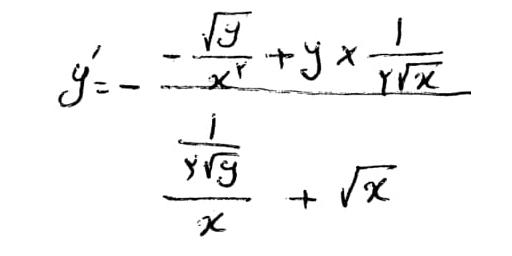 y′ = - (-√y/x^۲ + y × 1/(۲√x)) / ((1/(۲√y))/x + √x)